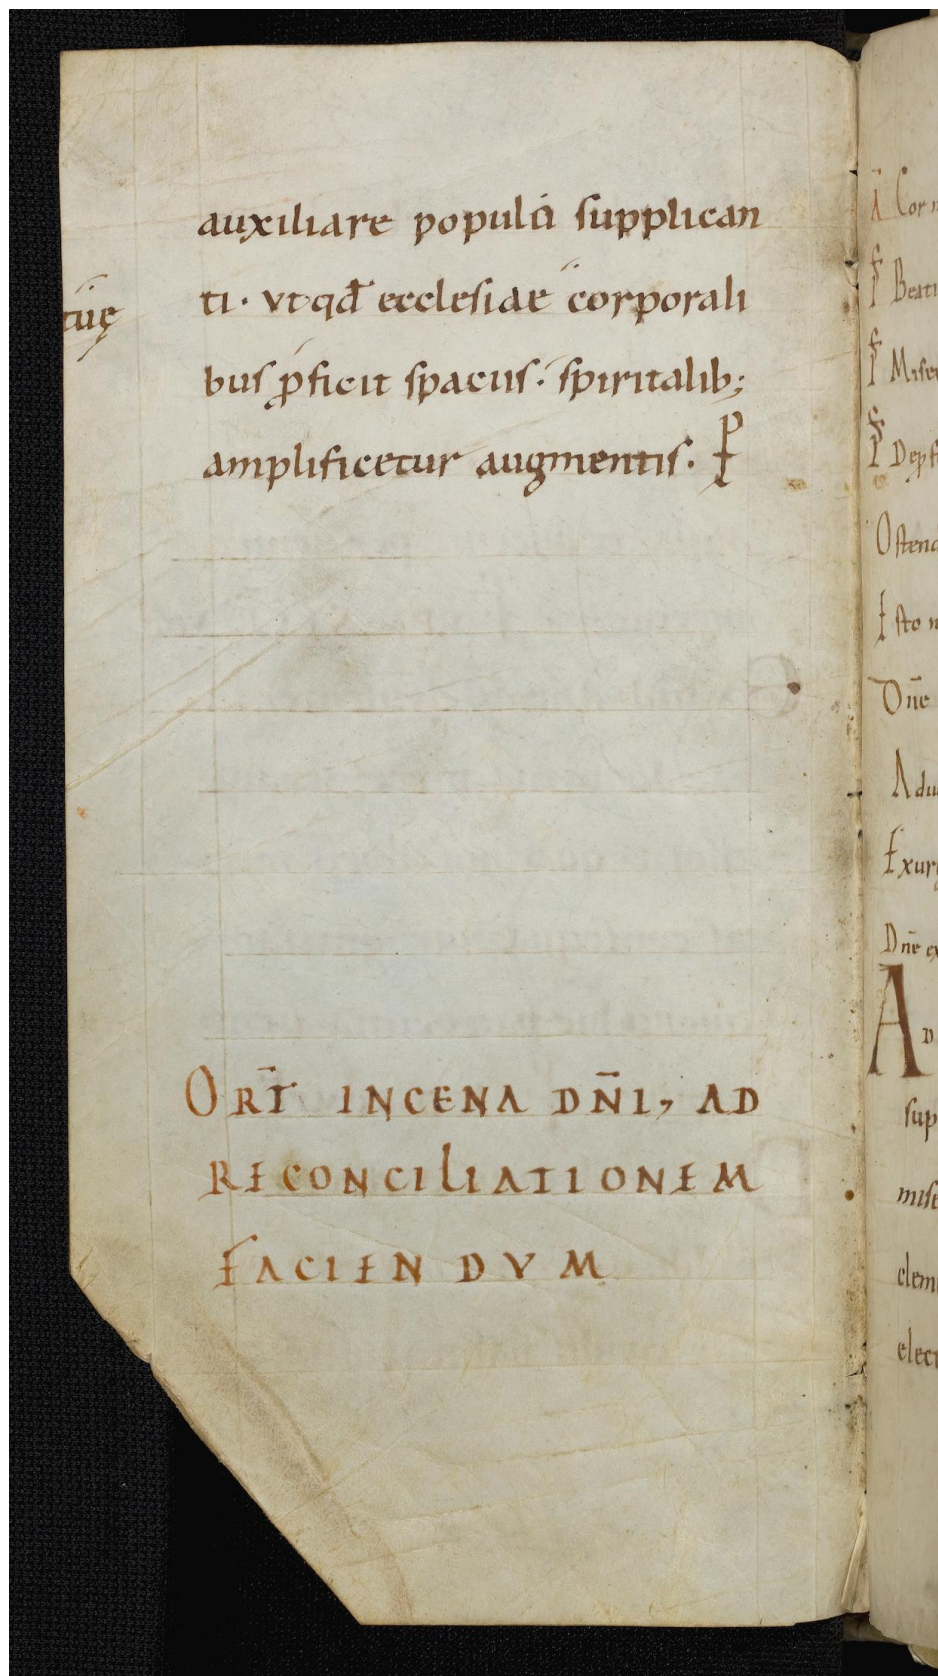 auxiliare populi supplican
ti· vt qđ ecclesiae corporali
tuę
bus ꝓficit spaciis· spiritalib;
amplificetur augmentis· P
ORT̄ IN CENA DN̄I, AD
RECONCILIATIONEM
FACIENDVM
Beati
Ostend
Esto n
Dn̄e
Adiu
Exurg
Dn̄e ex
AD
sup
mise
clem
elect